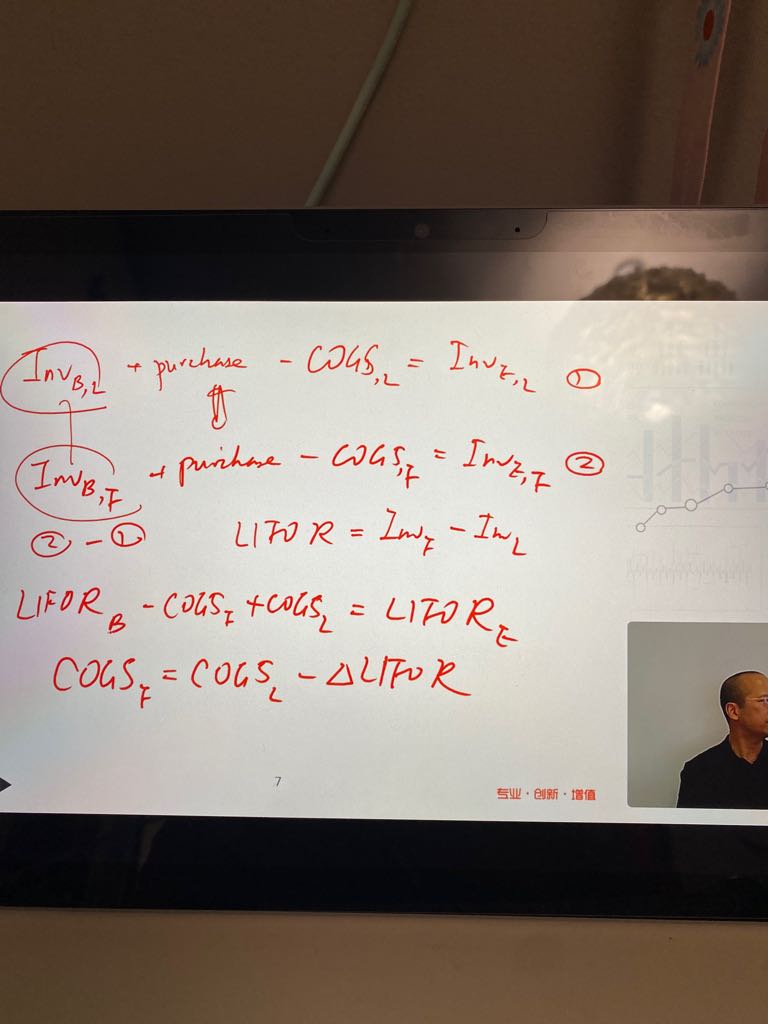 Inv_B,L + purchase - COGS,_L = Inv_E,L ①
Inv_B,F + purchase - COGS,_F = Inv_E,F ②
② - ① LIFOR = Inv_F - Inv_L
LIFOR_B - COGS_F + COGS_L = LIFOR_E
COGS_F = COGS_L - △LIFOR
7
专业·创新·增值